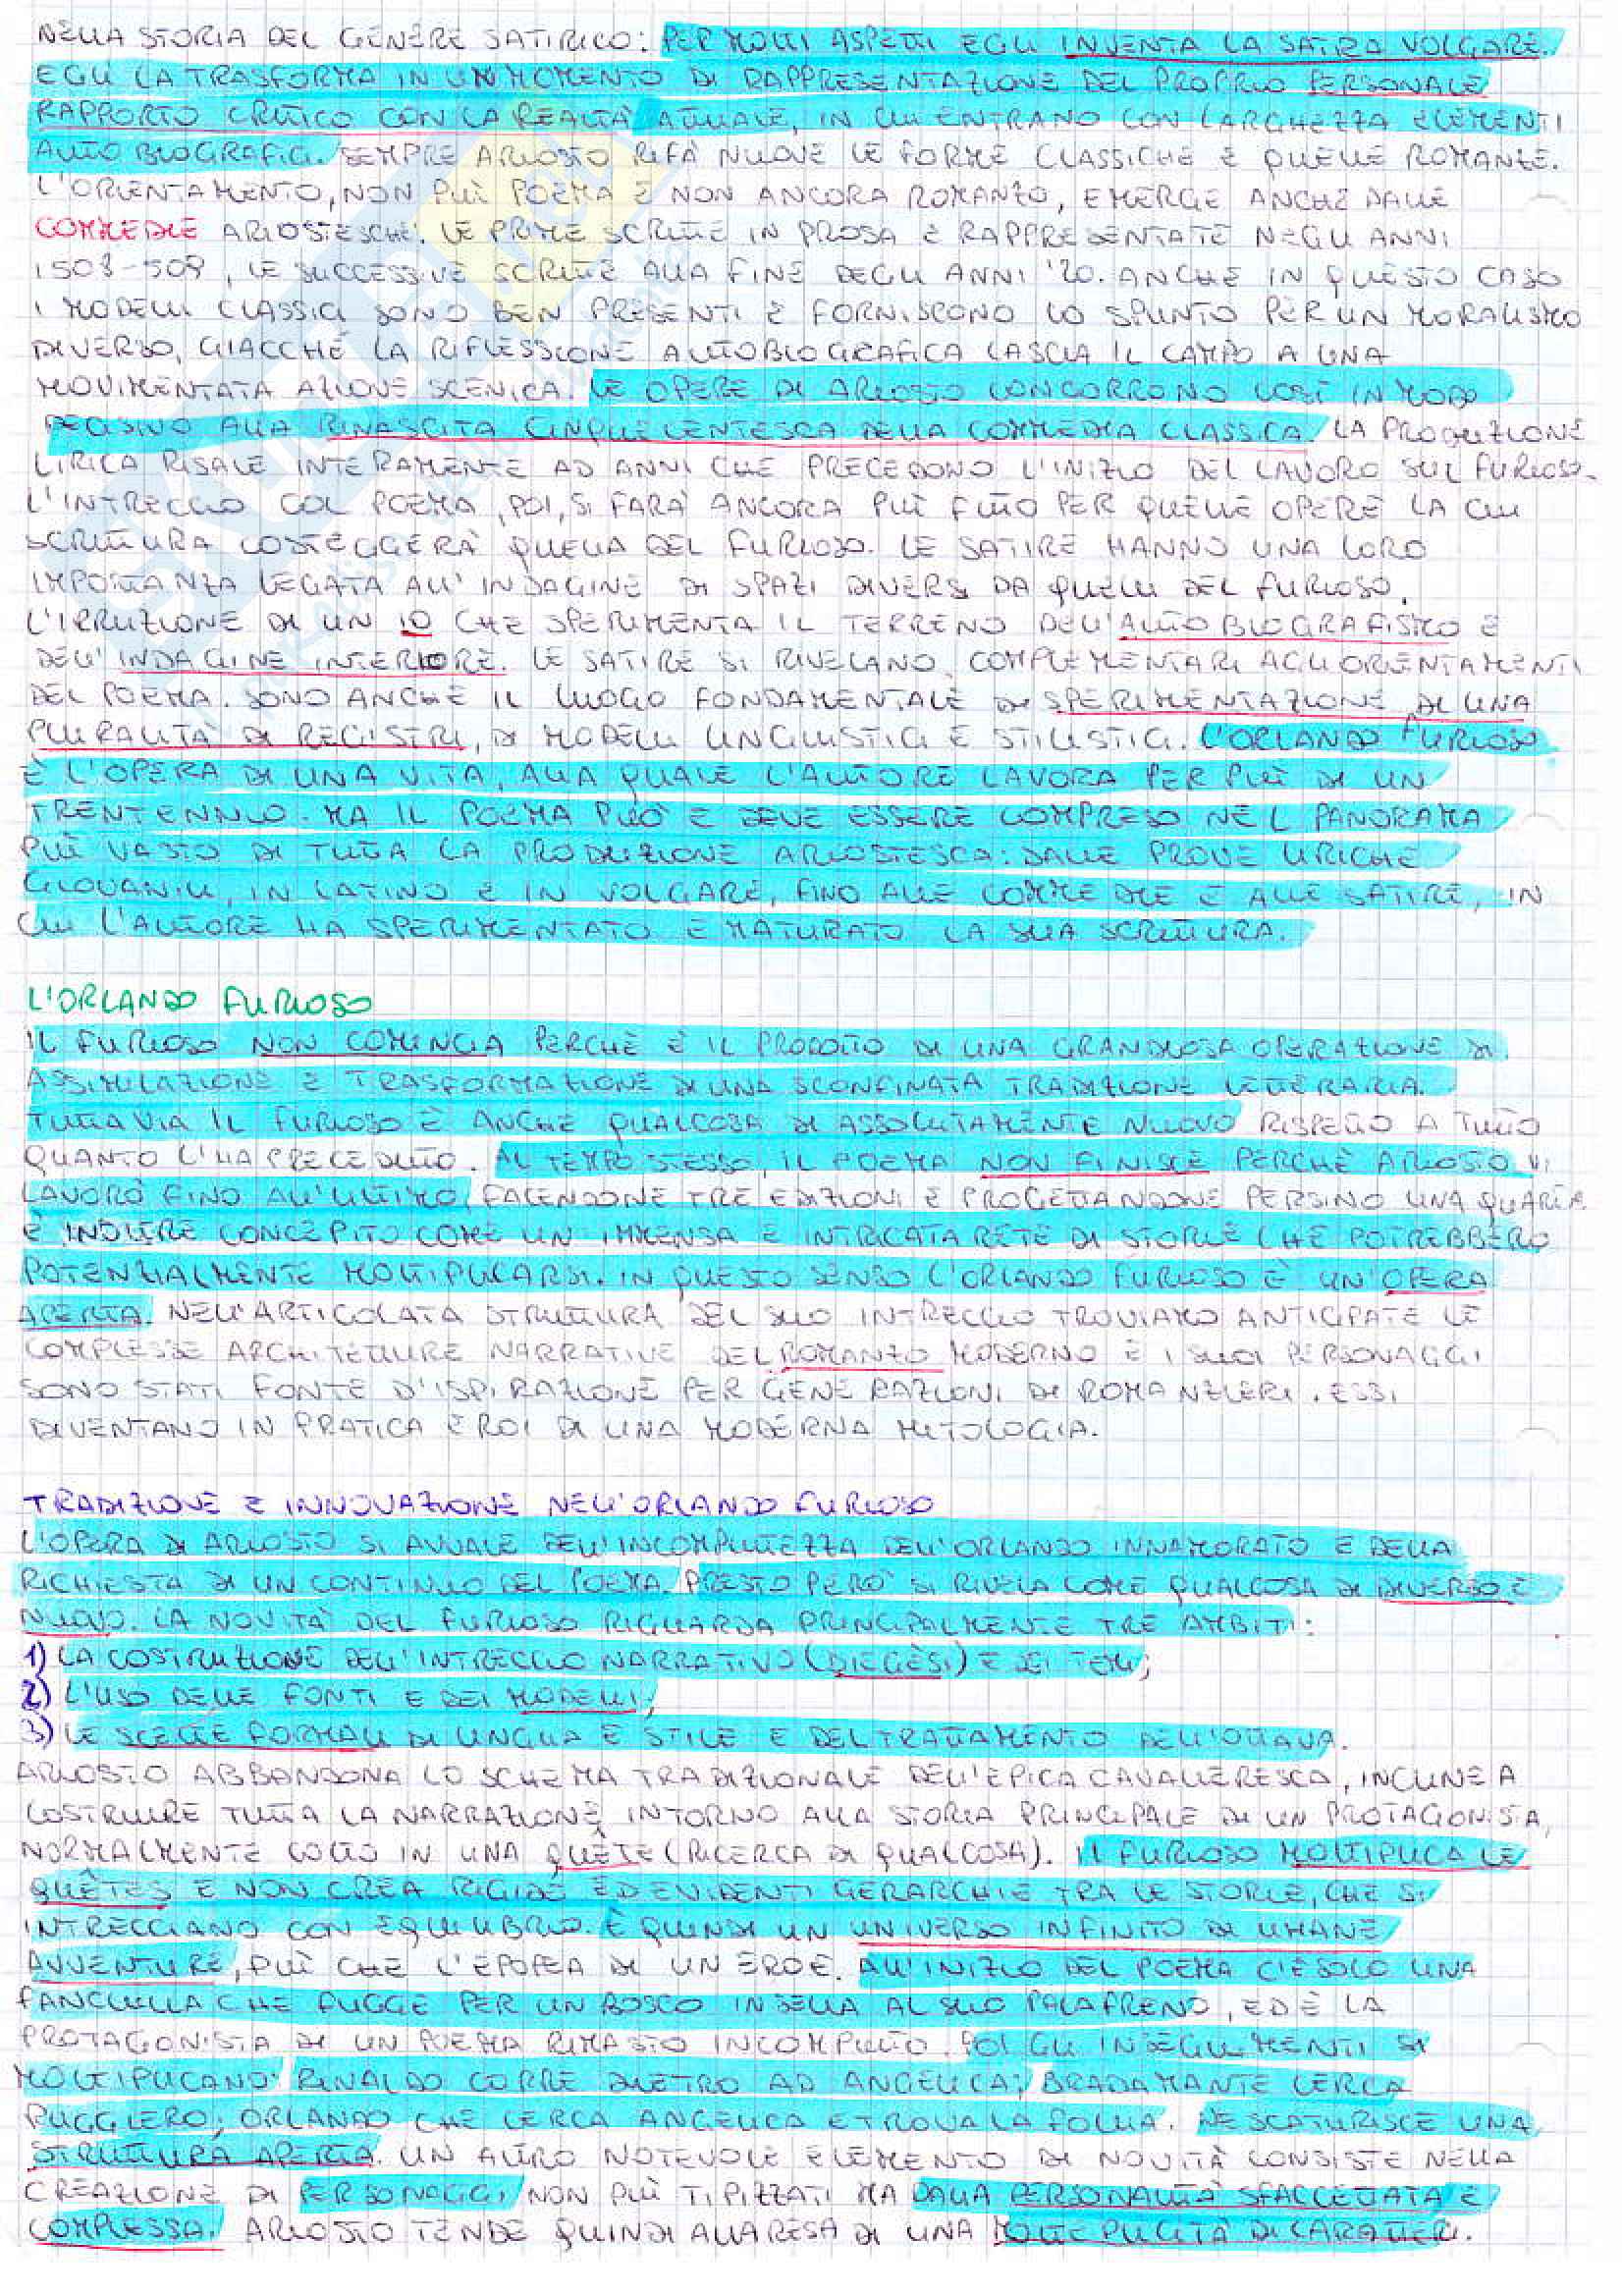 NELLA STORIA DEL GENERE SATIRICO: PER MOLTI ASPETTI EGLI INVENTA LA SATIRA VOLGARE.
EGLI LA TRASFORMA IN UN MOMENTO DI RAPPRESENTAZIONE DEL PROPRIO PERSONALE
RAPPORTO CRITICO CON LA REALTÀ ATTUALE, IN CUI ENTRANO CON LARGHEZZA ELEMENTI
AUTOBIOGRAFICI. SEMPRE ARIOSTO RIFÀ NUOVE LE FORME CLASSICHE E QUELLE ROMANZE.
L'ORIENTAMENTO, NON PIÙ POEMA E NON ANCORA ROMANZO, EMERGE ANCHE DALLE
COMMEDIE ARIOSTESCHE. LE PRIME SCRITTE IN PROSA E RAPPRESENTATE NEGLI ANNI
1508-509, LE SUCCESSIVE SCRITTE ALLA FINE DEGLI ANNI '20. ANCHE IN QUESTO CASO
I MODELLI CLASSICI SONO BEN PRESENTI E FORNISCONO LO SPUNTO PER UN MORALISMO
DIVERSO, GIACCHÉ LA RIFLESSIONE AUTOBIOGRAFICA LASCIA IL CAMPO A UNA
MOVIMENTATA AZIONE SCENICA. LE OPERE DI ARIOSTO CONCORRONO COSÌ IN MODO
DECISIVO ALLA RINASCITA CINQUECENTESCA DELLA COMMEDIA CLASSICA. LA PRODUZIONE
LIRICA RISALE INTERAMENTE AD ANNI CHE PRECEDONO L'INIZIO DEL LAVORO SUL FURIOSO.
L'INTRECCIO COL POEMA, POI, SI FARÀ ANCORA PIÙ FITTO PER QUELLE OPERE LA CUI
SCRITTURA COSTEGGERÀ QUELLA DEL FURIOSO. LE SATIRE HANNO UNA LORO
IMPORTANZA LEGATA ALL'INDAGINE DI SPAZI DIVERSI DA QUELLI DEL FURIOSO.
L'IRRUZIONE DI UN IO CHE SPERIMENTA IL TERRENO DELL'AUTOBIOGRAFISMO E
DELL'INDAGINE INTERIORE. LE SATIRE SI RIVELANO COMPLEMENTARI AGLI ORIENTAMENTI
DEL POEMA. SONO ANCHE IL LUOGO FONDAMENTALE DI SPERIMENTAZIONE DI UNA
PLURALITÀ DI REGISTRI, DI MODELLI LINGUISTICI E STILISTICI. L'ORLANDO FURIOSO
È L'OPERA DI UNA VITA, ALLA QUALE L'AUTORE LAVORA PER PIÙ DI UN
TRENTENNIO. MA IL POEMA PUÒ E DEVE ESSERE COMPRESO NEL PANORAMA
PIÙ VASTO DI TUTTA LA PRODUZIONE ARIOSTESCA: DALLE PROVE LIRICHE
GIOVANILI, IN LATINO E IN VOLGARE, FINO ALLE COMMEDIE E ALLE SATIRE, IN
CUI L'AUTORE HA SPERIMENTATO E MATURATO LA SUA SCRITTURA.
L'ORLANDO FURIOSO
IL FURIOSO NON COMINCIA PERCHÈ È IL PRODOTTO DI UNA GRANDIOSA OPERAZIONE DI
ASSIMILAZIONE E TRASFORMAZIONE DI UNA SCONFINATA TRADIZIONE LETTERARIA.
TUTTAVIA IL FURIOSO È ANCHE QUALCOSA DI ASSOLUTAMENTE NUOVO RISPETTO A TUTTO
QUANTO L'HA PRECEDUTO. AL TEMPO STESSO, IL POEMA NON FINISCE PERCHÈ ARIOSTO VI
LAVORÒ FINO ALL'ULTIMO, FACENDONE TRE EDIZIONI E PROGETTANDONE PERSINO UNA QUARTA.
È INOLTRE CONCEPITO COME UN'IMMENSA E INTRICATA RETE DI STORIE CHE POTREBBERO
POTENZIALMENTE MOLTIPLICARSI. IN QUESTO SENSO L'ORLANDO FURIOSO È UN'OPERA
APERTA. NELL'ARTICOLATA STRUTTURA DEL SUO INTRECCIO TROVIAMO ANTICIPATE LE
COMPLESSE ARCHITETTURE NARRATIVE DEL ROMANZO MODERNO E I SUOI PERSONAGGI
SONO STATI FONTE D'ISPIRAZIONE PER GENERAZIONI DI ROMANZIERI. ESSI
DIVENTANO IN PRATICA EROI DI UNA MODERNA MITOLOGIA.
TRADIZIONE E INNOVAZIONE NELL'ORLANDO FURIOSO
L'OPERA DI ARIOSTO SI AVVALE DELL'INCOMPIUTEZZA DELL'ORLANDO INNAMORATO E DELLA
RICHIESTA DI UN CONTINUO DEL POEMA. PRESTO PERÒ SI RIVELA COME QUALCOSA DI DIVERSO E
NUOVO. LA NOVITÀ DEL FURIOSO RIGUARDA PRINCIPALMENTE TRE AMBITI:
1) LA COSTRUZIONE DELL'INTRECCIO NARRATIVO (DIEGÈSI) E DEI TEMI;
2) L'USO DELLE FONTI E DEI MODELLI;
3) LE SCELTE FORMALI DI LINGUA E STILE E DEL TRATTAMENTO DELL'OTTAVA.
ARIOSTO ABBANDONA LO SCHEMA TRADIZIONALE DELL'EPICA CAVALLERESCA, INCLINE A
COSTRUIRE TUTTA LA NARRAZIONE INTORNO ALLA STORIA PRINCIPALE DI UN PROTAGONISTA,
NORMALMENTE COLTO IN UNA QUÊTE (RICERCA DI QUALCOSA). IL FURIOSO MOLTIPLICA LE
QUÊTES E NON CREA RIGIDE ED EVIDENTI GERARCHIE TRA LE STORIE, CHE SI
INTRECCIANO CON EQUILIBRIO. È QUINDI UN UNIVERSO INFINITO DI UMANE
AVVENTURE, PIÙ CHE L'EPOPEA DI UN EROE. ALL'INIZIO DEL POEMA C'È SOLO UNA
FANCIULLA CHE FUGGE PER UN BOSCO IN SELLA AL SUO PALAFRENO, ED È LA
PROTAGONISTA DI UN POEMA RIMASTO INCOMPIUTO. POI GLI INSEGUIMENTI SI
MOLTIPLICANO: RINALDO CORRE DIETRO AD ANGELICA; BRADAMANTE CERCA
RUGGIERO; ORLANDO CHE CERCA ANGELICA E TROVA LA FOLLIA. NE SCATURISCE UNA
STRUTTURA APERTA. UN ALTRO NOTEVOLE ELEMENTO DI NOVITÀ CONSISTE NELLA
CREAZIONE DI PERSONAGGI NON PIÙ TIPIZZATI MA DALLA PERSONALITÀ SFACCETTATA E
COMPLESSA. ARIOSTO TENDE QUINDI ALLA RESA DI UNA MOLTEPLICITÀ DI CARATTERI.